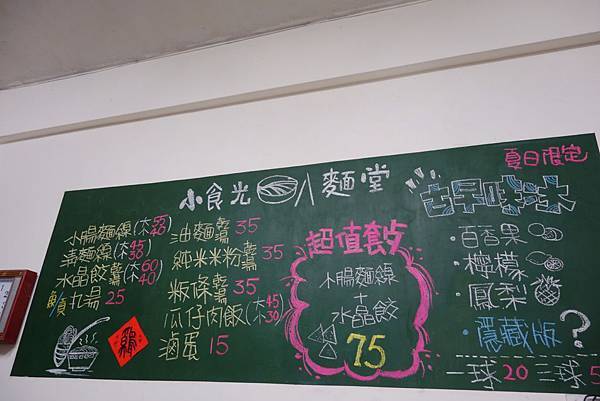 小食光 麵堂
夏日限定
小腸麵線(大55 小40)
清麵線(大45 小30)
水晶餃(大60 小40)
丸湯 25
油麵 35
純米米粉 35
粄條 35
瓜仔肉飯(大45 小30)
滷蛋 15
超值套
小腸麵線
+
水晶餃
75
古早味冰
·百香果
·檸檬
·鳳梨
·隱藏版?
一球20 三球5